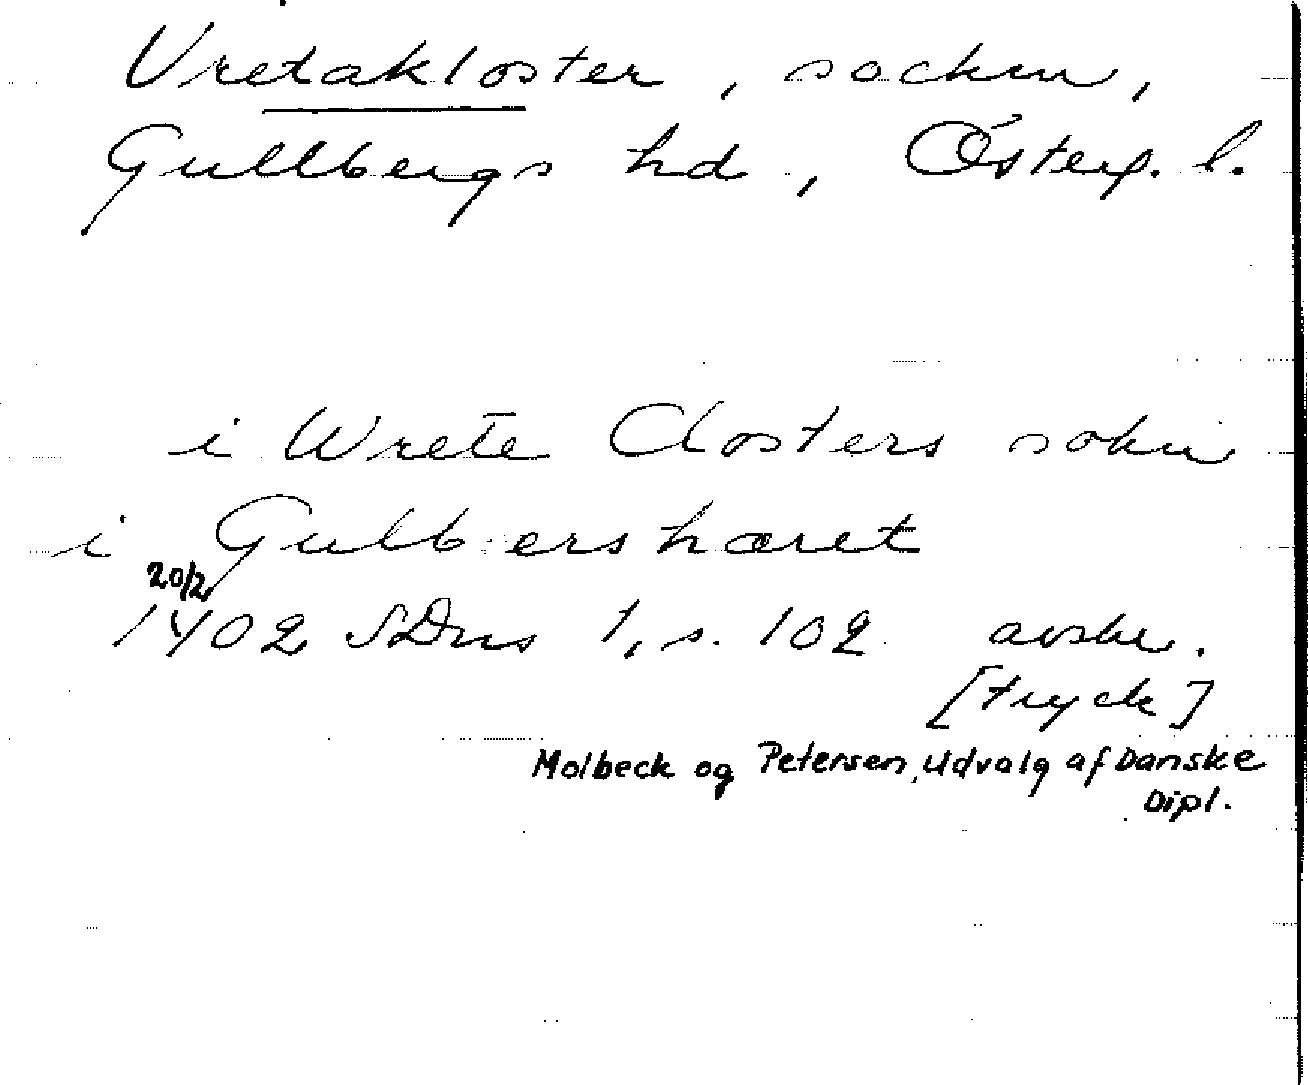 Vretakloster, socken,
Gullbergs hd, Österg. l.
i Wretē Closters sokn
i Gulbershæret
20/2
1402 SDns 1, s. 102 avskr.
[tryck]
Molbeck og Petersen, Udvalg af Danske
Dipl.